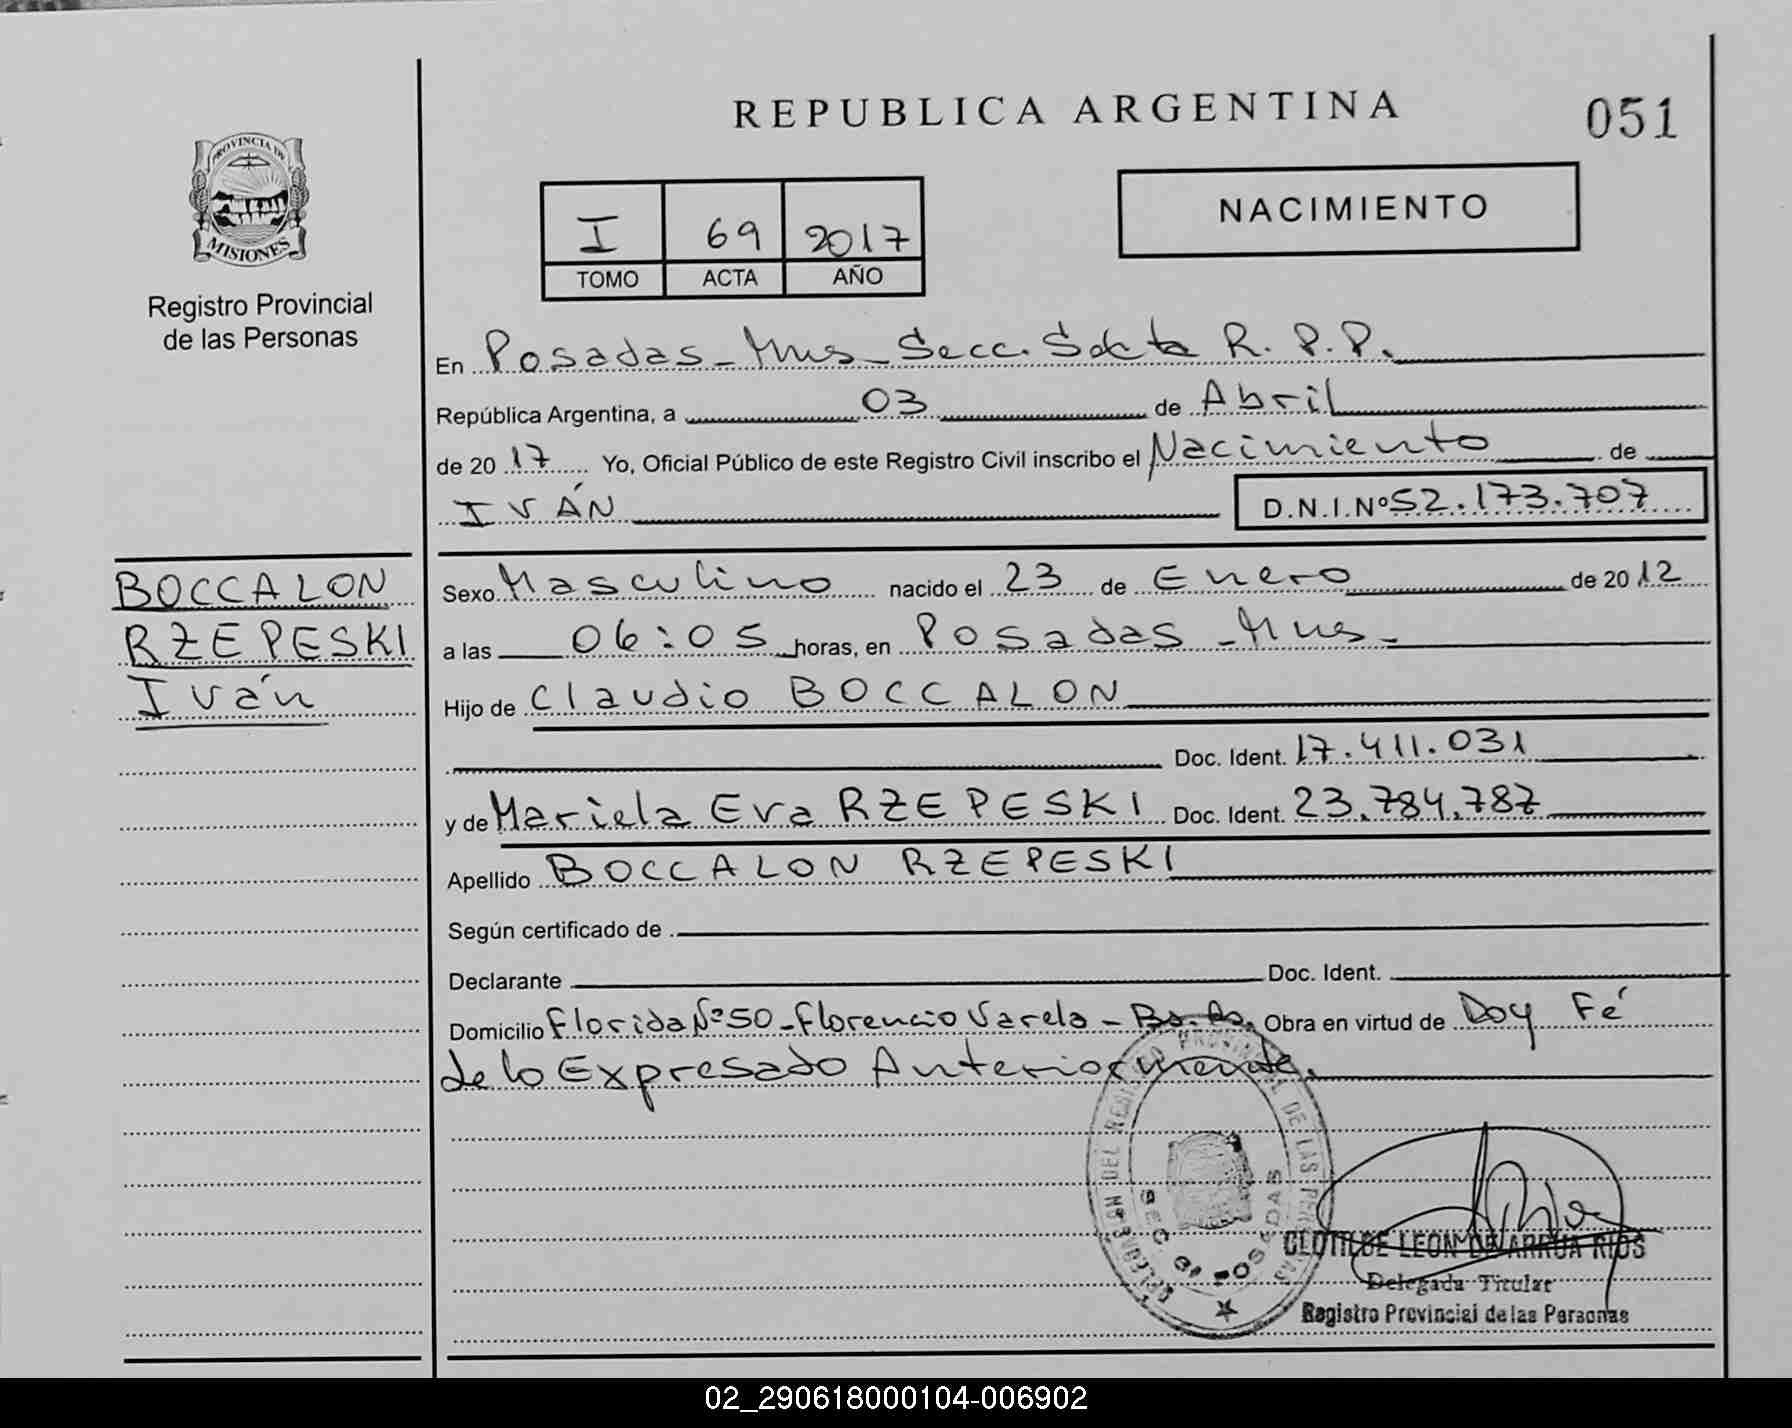 REPUBLICA ARGENTINA
051
PROVINCIA DE
MISIONES
Registro Provincial
de las Personas
I 69 2017
TOMO ACTA AÑO
NACIMIENTO
En Posadas - Mnes - Secc. Sexta R. P. P.
República Argentina, a 03 de Abril
de 20 17 Yo, Oficial Público de este Registro Civil inscribo el Nacimiento de
IVÁN D.N.I.Nº 52.173.707
BOCCALON
RZEPESKI
Iván
Sexo Masculino nacido el 23 de Enero de 20 12
a las 06:05 horas, en Posadas - Mnes -
Hijo de Claudio BOCCALON
Doc. Ident. 17.411.031
y de Mariela Eva RZEPESKI Doc. Ident. 23.784.787
Apellido BOCCALON RZEPESKI
Según certificado de
Declarante Doc. Ident.
Domicilio Florida Nº 50 - Florencio Varela - Bs. As. Obra en virtud de Doy Fé
de lo Expresado Anteriormente.
DELEGACIÓN DEL REGISTRO PROVINCIAL DE LAS PERSONAS
POSADAS
CLOTILDE LEON DE ARRUA RIOS
Delegada Titular
Registro Provincial de las Personas
02_290618000104-006902